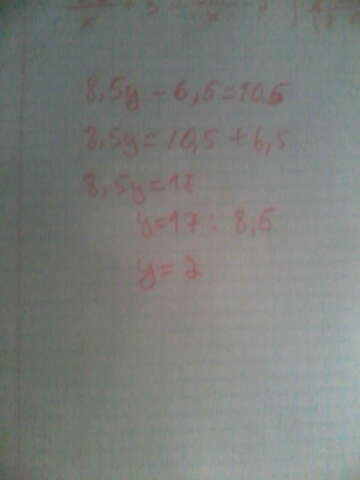 8,5y - 6,5 = 10,5
8,5y = 10,5 + 6,5
8,5y = 17
y = 17 : 8,5
y = 2